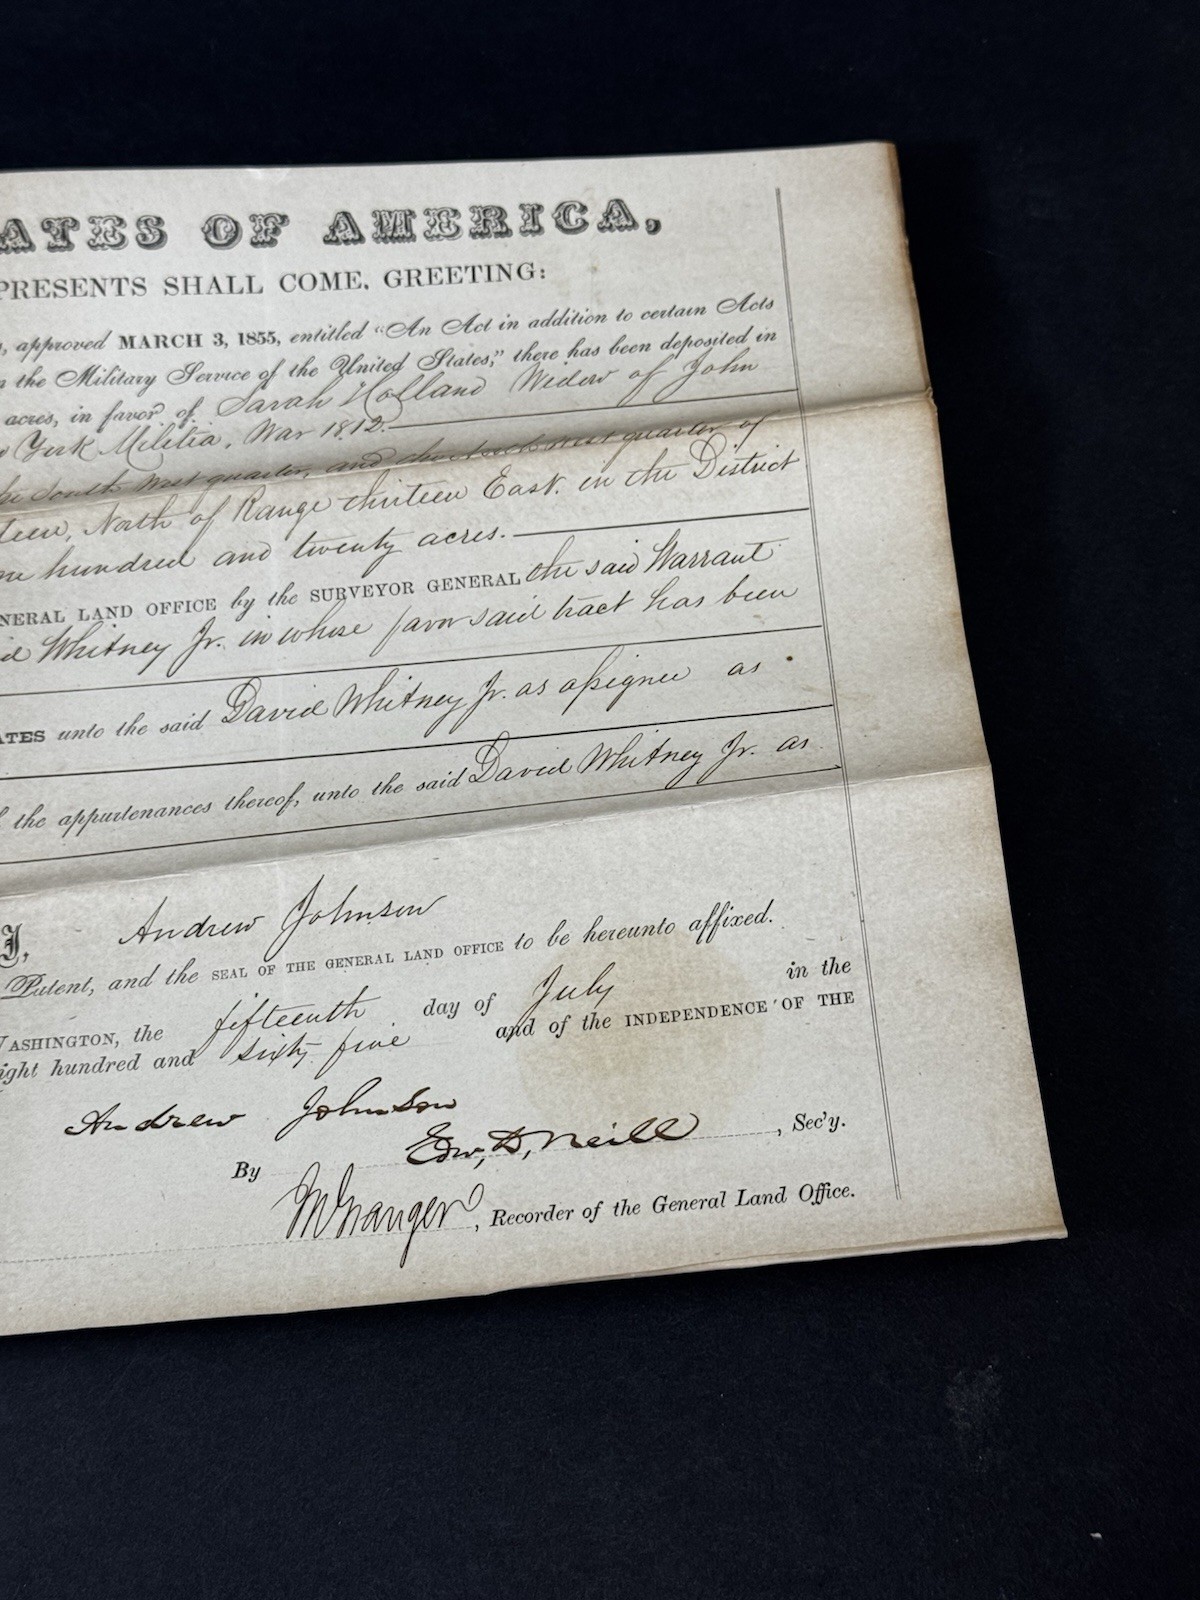 ATES OF AMERICA,
PRESENTS SHALL COME, GREETING:
, approved MARCH 3, 1855, entitled "An Act in addition to certain Acts
the Military Service of the United States," there has been deposited in
acres, in favor of Sarah Holland Widow of John
York Militia, War 1812.
South West quarter, and the South West quarter of
teen, North of Range thirteen East. in the District
one hundred and twenty acres.
NERAL LAND OFFICE by the SURVEYOR GENERAL the said Warrant
id Whitney Jr. in whose favor said tract has been
ATES unto the said David Whitney Jr. as assignee as
the appurtenances thereof, unto the said David Whitney Jr. as
I, Andrew Johnson
Patent, and the SEAL OF THE GENERAL LAND OFFICE to be hereunto affixed.
WASHINGTON, the fifteenth day of July in the
ight hundred and sixty five and of the INDEPENDENCE OF THE
Andrew Johnson
By Edw. D. Neill , Sec'y.
Granger , Recorder of the General Land Office.